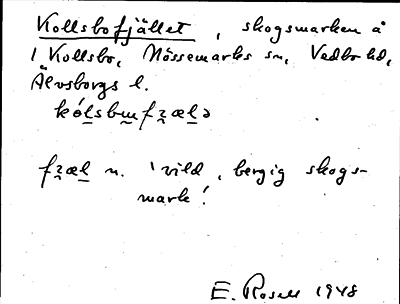 Kollsbofjället, skogsmarken å
1 Kollsbo, Nössemarks sn, Vedbo hd,
Älvsborgs l.
kólsbɯmfʒælə
fʒæl n. 'vild, bergig skogs-
mark'.
E. Rosell 1948